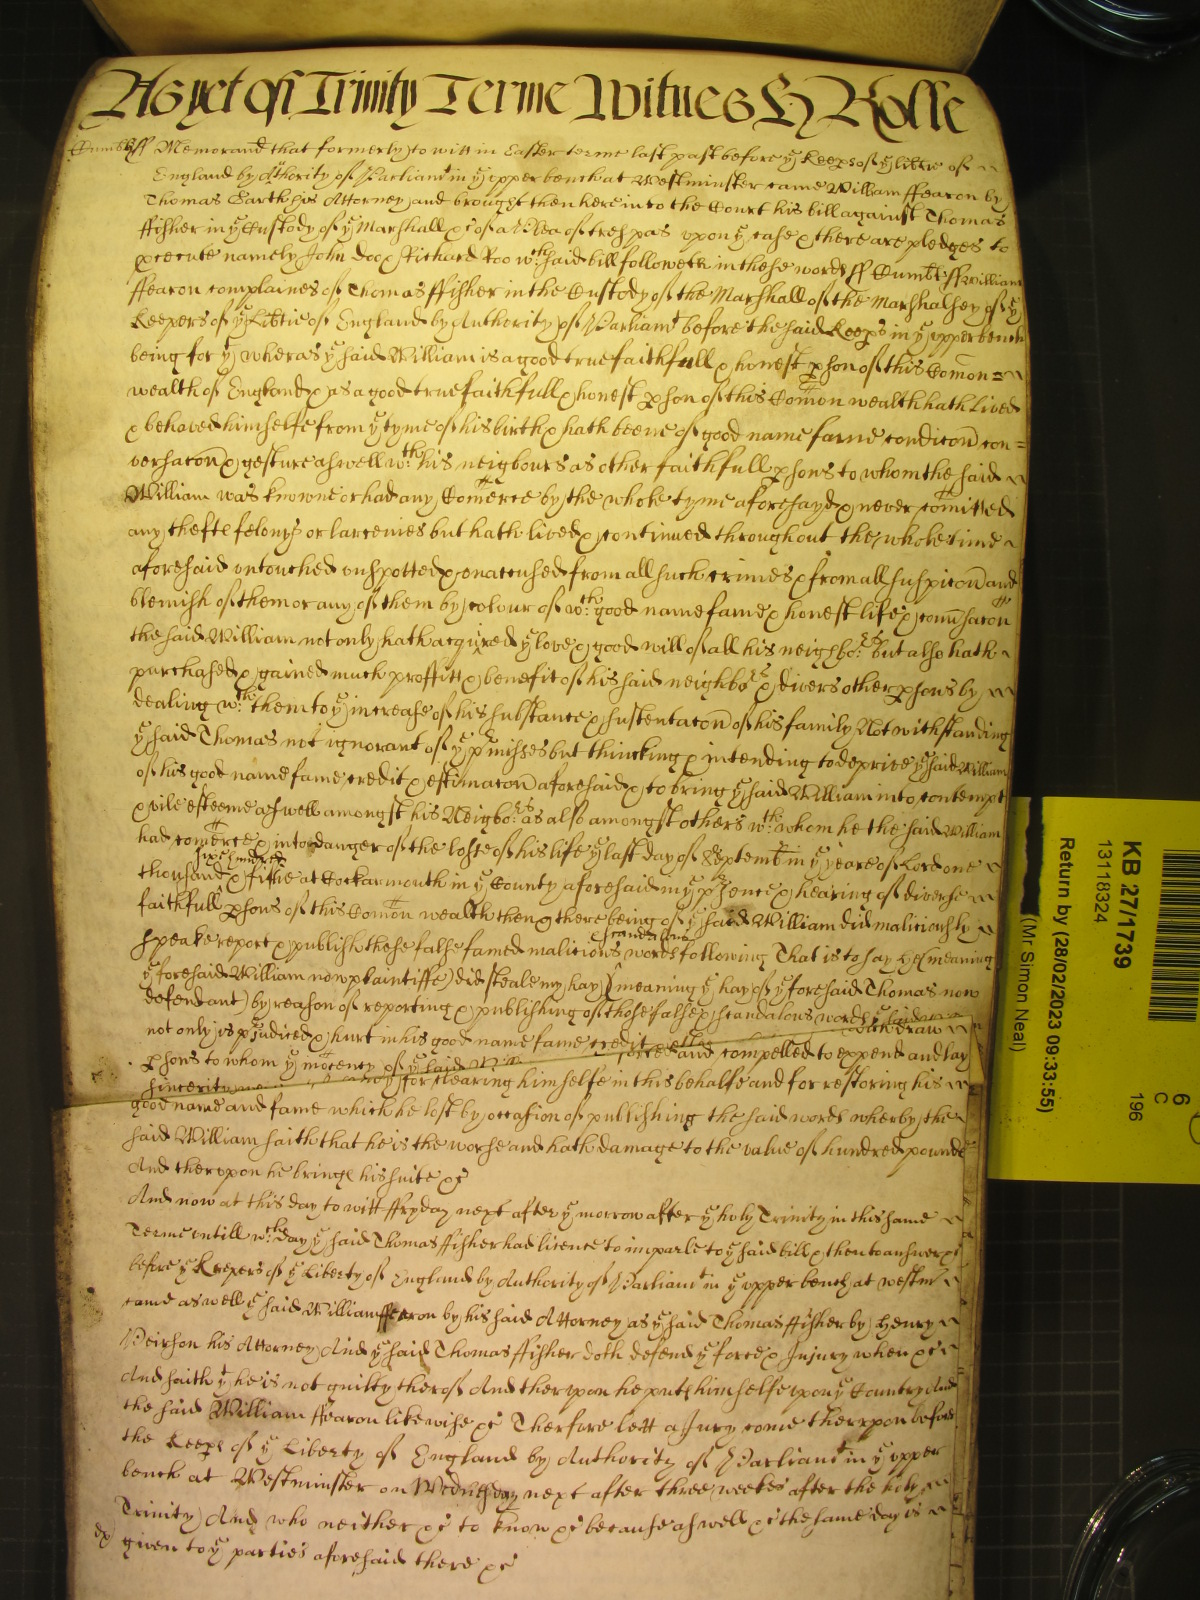 As yet of Trinity Terme Witnes H Rolle
Cumbr ss Memorand that formerly to witt in Easter terme last past before ye Keeps of ye lib̃tie of
England by Authority of Parliamt in ye upper bench at Westminster came William ffearon by
Thomas Garth his Attorney and brought then here into the Court his bill against Thomas
ffisher in ye Custody of ye Marshall &c of a Plea of trespas upon ye case & there are pledges to
prosecute namely John Doo & Richard Roo wch said bill followeth in these words ss Cumbr ss William
ffearon complaines of Thomas ffisher in the Custody of the Marshall of the Marshalsey of ye
Keepers of ye Lib̃tie of England by Authority of Parliamt before the said Keeps in ye upper bench
being for yt wheras ye said William is a good true faithfull & honest pson of this Com̃on=
wealth of England & as a good true faithfull & honest pson of this Com̃on wealth hath lived
& behaved himselfe from ye tyme of his birth & hath beene of good name fame condic̃on con=
versac̃on & gesture aswell wth his neigbours as other faithfull psons to whom the said
William was knowne or had any Com̃erce by the whole tyme aforesayd & never com̃itted
any thefte felony or larcenies but hath lived & continued throughout the whole time
aforesaid untouched unspotted & unaccused from all such crimes & from all suspic̃on and
blemish of them or any of them by colour of wch good name fame & honest life & conṽsac̃on
the said William not only hath acquired ye love & good will of all his neighbors but also hath
purchased & gained much proffitt & benefit of his said neighbors & divers other psons by
dealing wth them to ye increase of his substance & sustentac̃on of his family Notwithstanding
ye said Thomas not ignorant of ye pmisses but thincking & intending to deprive ye said William
of his good name fame credit & estimac̃on aforesaid & to bring ye said William into contempt
& vile esteeme aswell amongst his Neigbors as also amongst others wth whom he the said William
had com̃erce & into danger of the losse of his life ye last day of Septemb̃ in ye yeare of or Lord one
thousand six hundred & fiftie at Cockarmouth in ye County aforesaid in ye psence & hearing of diverse
faithfull psons of this Com̃on wealth then & there being of ye said William did maliciously
speake report & publish these false famed malicious & scandalous words following That is to say he (meaning
ye foresaid William now plaintiffe) did steale my hay (meaning ye hay of ye foresaid Thomas now
defendant) by reason of reporting & publishing of those false & scandalous words ye said
not only is pjudiced & hurt in his good name fame credit withdraw
psons to whom ye inocency of ye said forced and compelled to expend and lay
sincerity for clearing himselfe in this behalfe and for restoring his
good name and fame which he lost by occasion of publishing the said words wherby the
said William saith that he is the worse and hath damage to the value of hundred pounds
And therupon he bringes his suite &c
And now at this day to witt ffryday next after ye morrow after ye holy Trinity in this same
Terme untill wch day ye said Thomas ffisher had licence to imparle to ye said bill & then to answer &c
before ye Keepers of ye Liberty of England by Authority of Parliamt in ye upper bench at westm̃
came aswell ye said William ffearon by his said Attorney as ye said Thomas ffisher by Henry
Peirson his Attorney And ye said Thomas ffisher doth defend ye force & Injury when &c
And saith yt he is not guilty therof And therupon he puts himselfe upon ye Country And
the said William ffearon likewise &c Therfore lett a Jury come therupon before
the Keeps of ye Liberty of England by Authority of Parliamt in ye upper
bench at Westminster on Wednesday next after three weekes after the holy
Trinity And who neither &c to know &c because aswell &c the same day is
given to ye parties aforesaid there &c
KB 27/1739
13118324
Return by (28/02/2023 09:33:55)
(Mr Simon Neal)
6
C
196